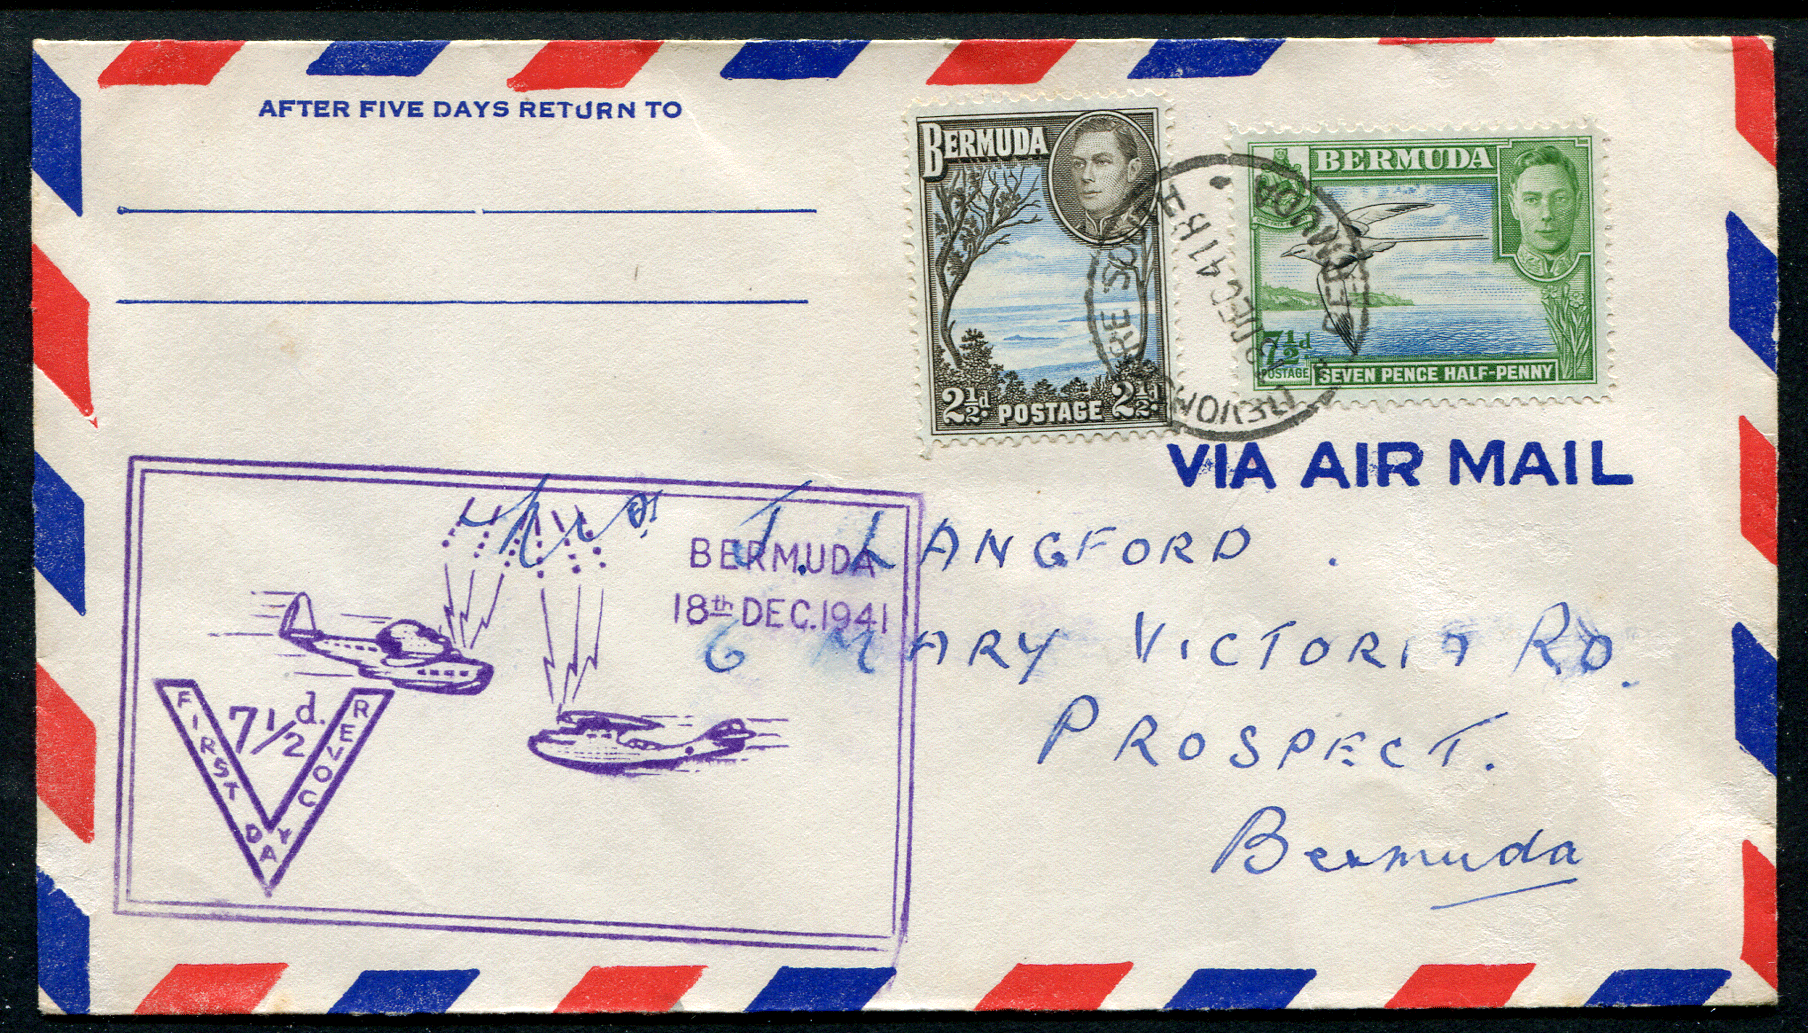 AFTER FIVE DAYS RETURN TO
BERMUDA
2½d. POSTAGE 2½d.
BERMUDA
7½d
POSTAGE SEVEN PENCE HALF-PENNY
DEC 41
BERMUDA
VIA AIR MAIL
BERMUDA
18th DEC. 1941
7½d.
FIRST DAY
COVER
Mrs. J. LANGFORD.
6 MARY VICTORIA RD.
PROSPECT.
Bermuda